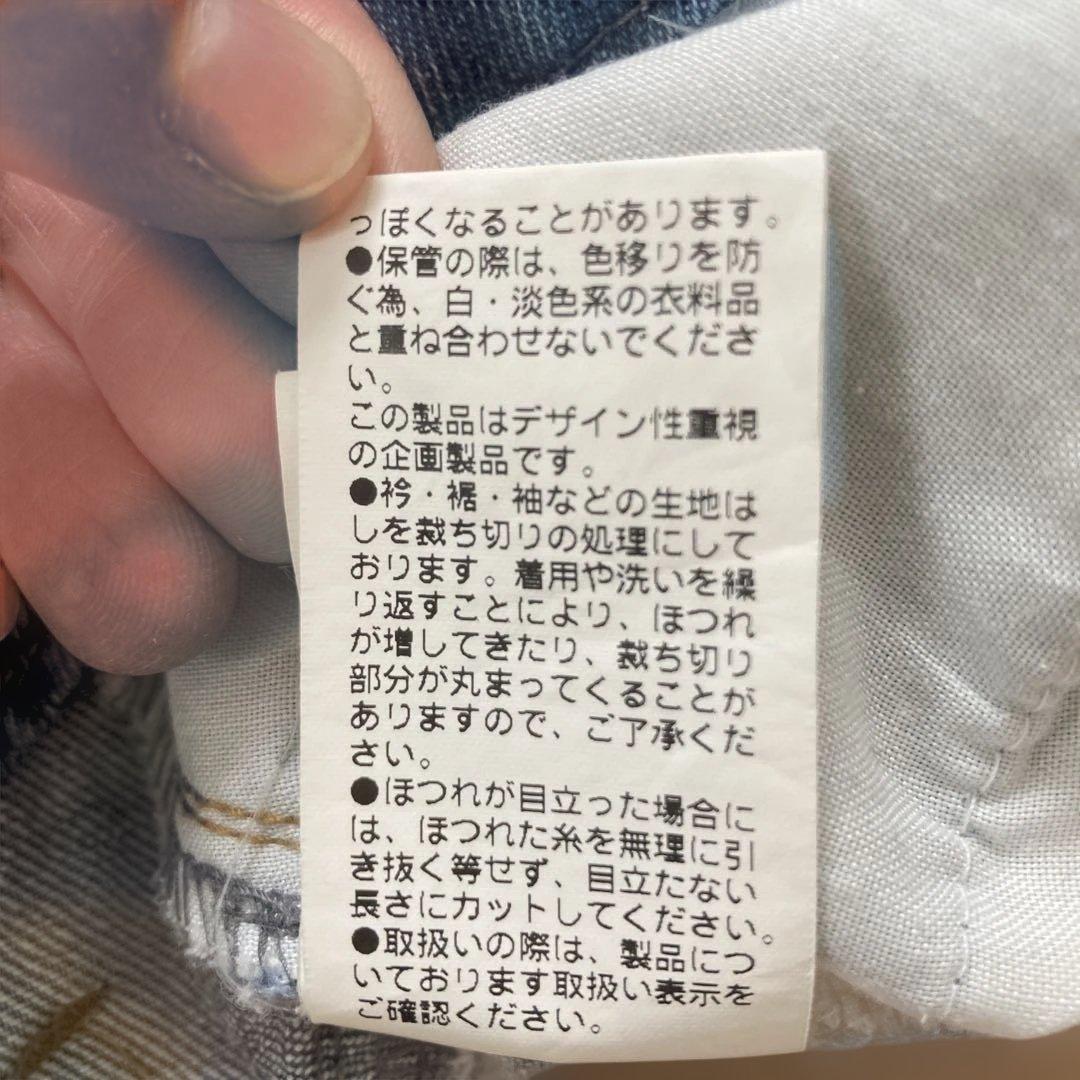 っぽくなることがあります。
●保管の際は、色移りを防
ぐ為、白・淡色系の衣料品
と重ね合わせないでくださ
い。
この製品はデザイン性重視
の企画製品です。
●衿・裾・袖などの生地は
しを裁ち切りの処理にして
おります。着用や洗いを繰
り返すことにより、ほつれ
が増してきたり、裁ち切り
部分が丸まってくることが
ありますので、ご了承くだ
さい。
●ほつれが目立った場合に
は、ほつれた糸を無理に引
き抜く等せず、目立たない
長さにカットしてください。
●取扱いの際は、製品につ
いております取扱い表示を
ご確認ください。